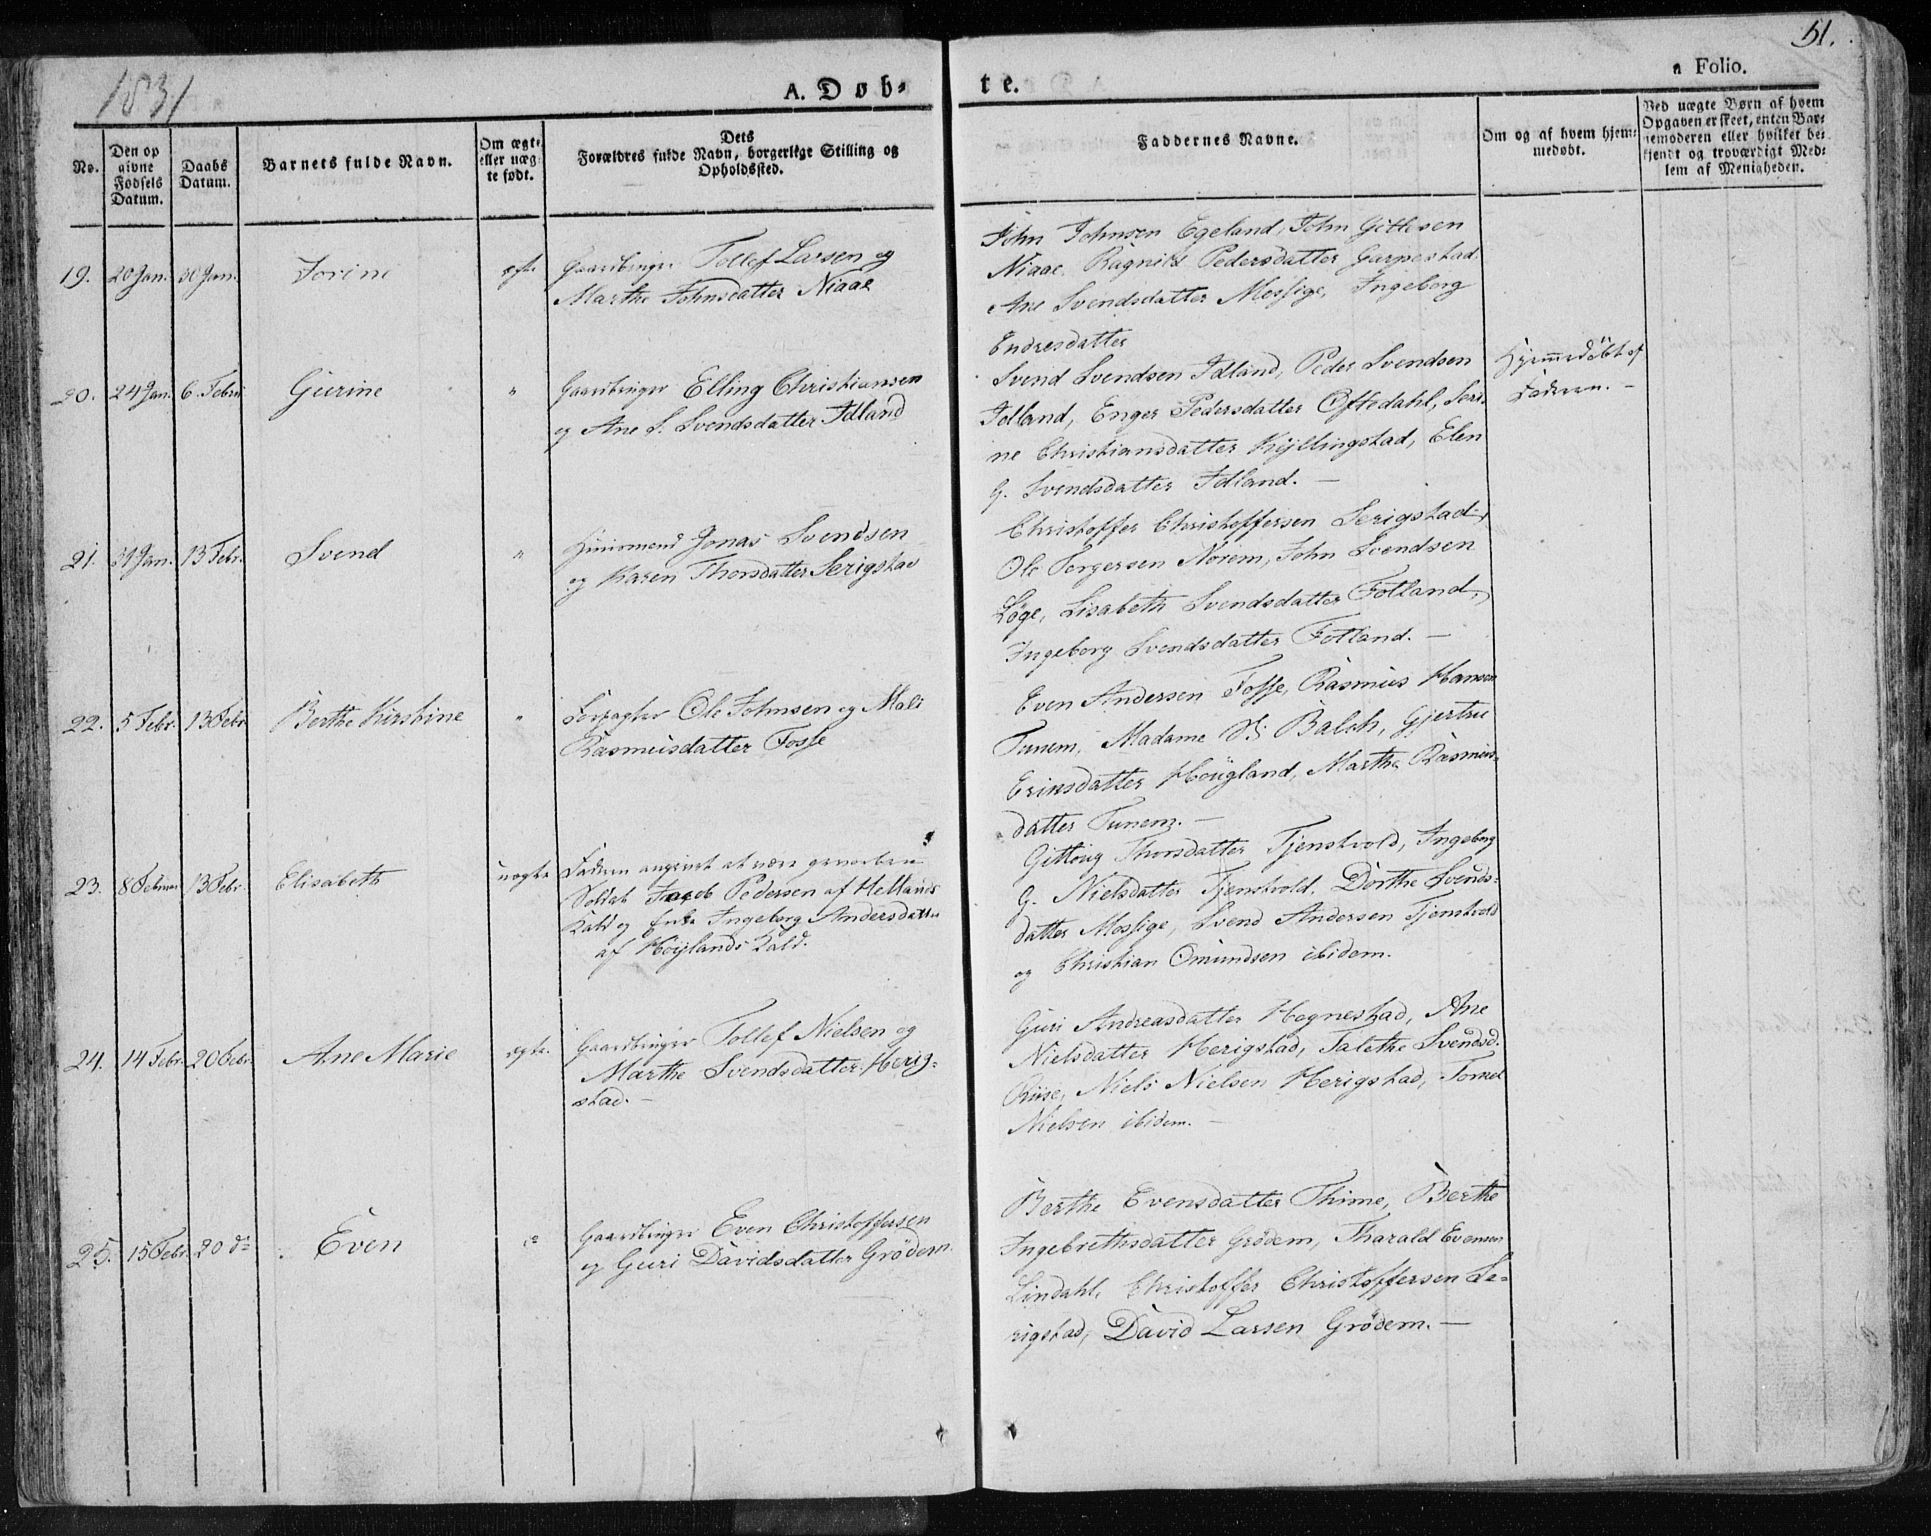 1831
A. Døb-
te.
51.
a Folio.
No.
Den op
givne
Fødsels
Datum.
Daabs
Datum.
Barnets fulde Navn.
Om ægte
eller uæg-
te født.
Dets
Forældres fulde Navn, borgerlige Stilling og
Opholdssted.
Faddernes Navne.
Om og af hvem hjem-
medøbt.
Ved uægte Børn af hvem
Opgaven er skeet, enten Bar-
nemoderen eller hvilket be-
kjendt og troværdigt Med-
lem af Menigheden.
19. 20 Jan. 30 Jan. Torine ægte Gaardbruger Tollef Larsen og
Marthe Johnsdatter Niaae
John Johnsen Egeland, John Gitlesen
Niaae, Ragnild Pedersdatter Garpestad
Ane Svendsdatter Mossige, Ingeborg
Endresdatter
20. 24 Jan. 6 Febru Gurine " Gaardbruger Elling Christiansen
og Ane S. Svendsdatter Idland
Svend Svendsen Idland, Peder Svendsen
Idland, Enger Pedersdatter Oftedahl, Seri-
ne Christiansdatter Kyllingstad, Elen
G. Svendsdatter Idland. —
Hjemmedøbt af
Faderen. —
21. 31 Jan. 13 Febr. Svend " Huusmand Jonas Svendsen
og Karen Thorsdatter Serigstad
Christoffer Christoffersen Serigstad,
Ole Torgersen Norem, John Svendsen
Løge, Lisabeth Svendsdatter Fotland,
Ingeborg Svendsdatter Fotland. —
22. 5 Febr. 13 Febr Berthe Kirstine " Forpagter Ole Johnsen og Mali
Rasmusdatter Fosse
Even Andersen Fosse, Rasmus Hansen
Tunem, Madame Balch, Gjertru
Erinsdatter Høugland, Marthe Rasmus-
datter Tunem. —
23. 8 Februar 13 Febr Elisabeth uægte Faderen angivet at være geworben
Soldat Jacob Pedersen af Hetlands
Kald og Enke Ingeborg Andersdatter
af Høylands Kald.
Gitloug Thorsdatter Tjenstvold, Ingeborg
G. Nielsdatter Tjenstvold, Dorthe Svends-
datter Mossige, Svend Andersen Tjenstvold
og Christian Omundsen ibidem.
24. 14 Febr. 20 Febr. Ane Marie ægte. Gaardbruger Tollef Nielsen og
Marthe Svendsdatter Herig-
stad. —
Guri Andreasdatter Hognestad, Ane
Nielsdatter Herigstad, Talethe Svendsd.
Riise, Niels Nielsen Herigstad, Tornel
Nielsen ibidem. —
25. 15 Febr. 20 do Even do Gaardbruger Even Christoffersen
og Guri Davidsdatter Grødem.
Berthe Evensdatter Thime, Berthe
Ingebrethsdatter Grødem, Tharald Evensen
Lindahl, Christoffer Christoffersen Se-
rigstad, David Larsen Grødem. —